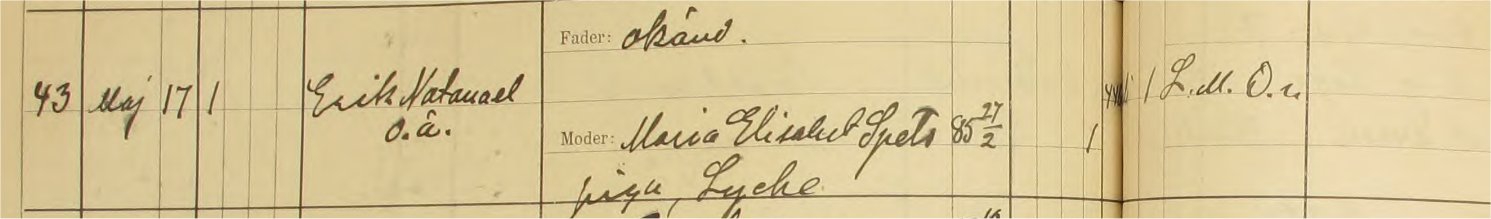 Fader: okänd.
43 Maj 17 1 Erik Natanael 1 L. M. O. n.
o.ä. Moder: Maria Elisabet Spets 85 27/2 1
piga, Lycke